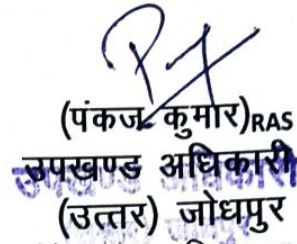 (पंकज कुमार)RAS
उपखण्ड अधिकारी
(उत्तर) जोधपुर